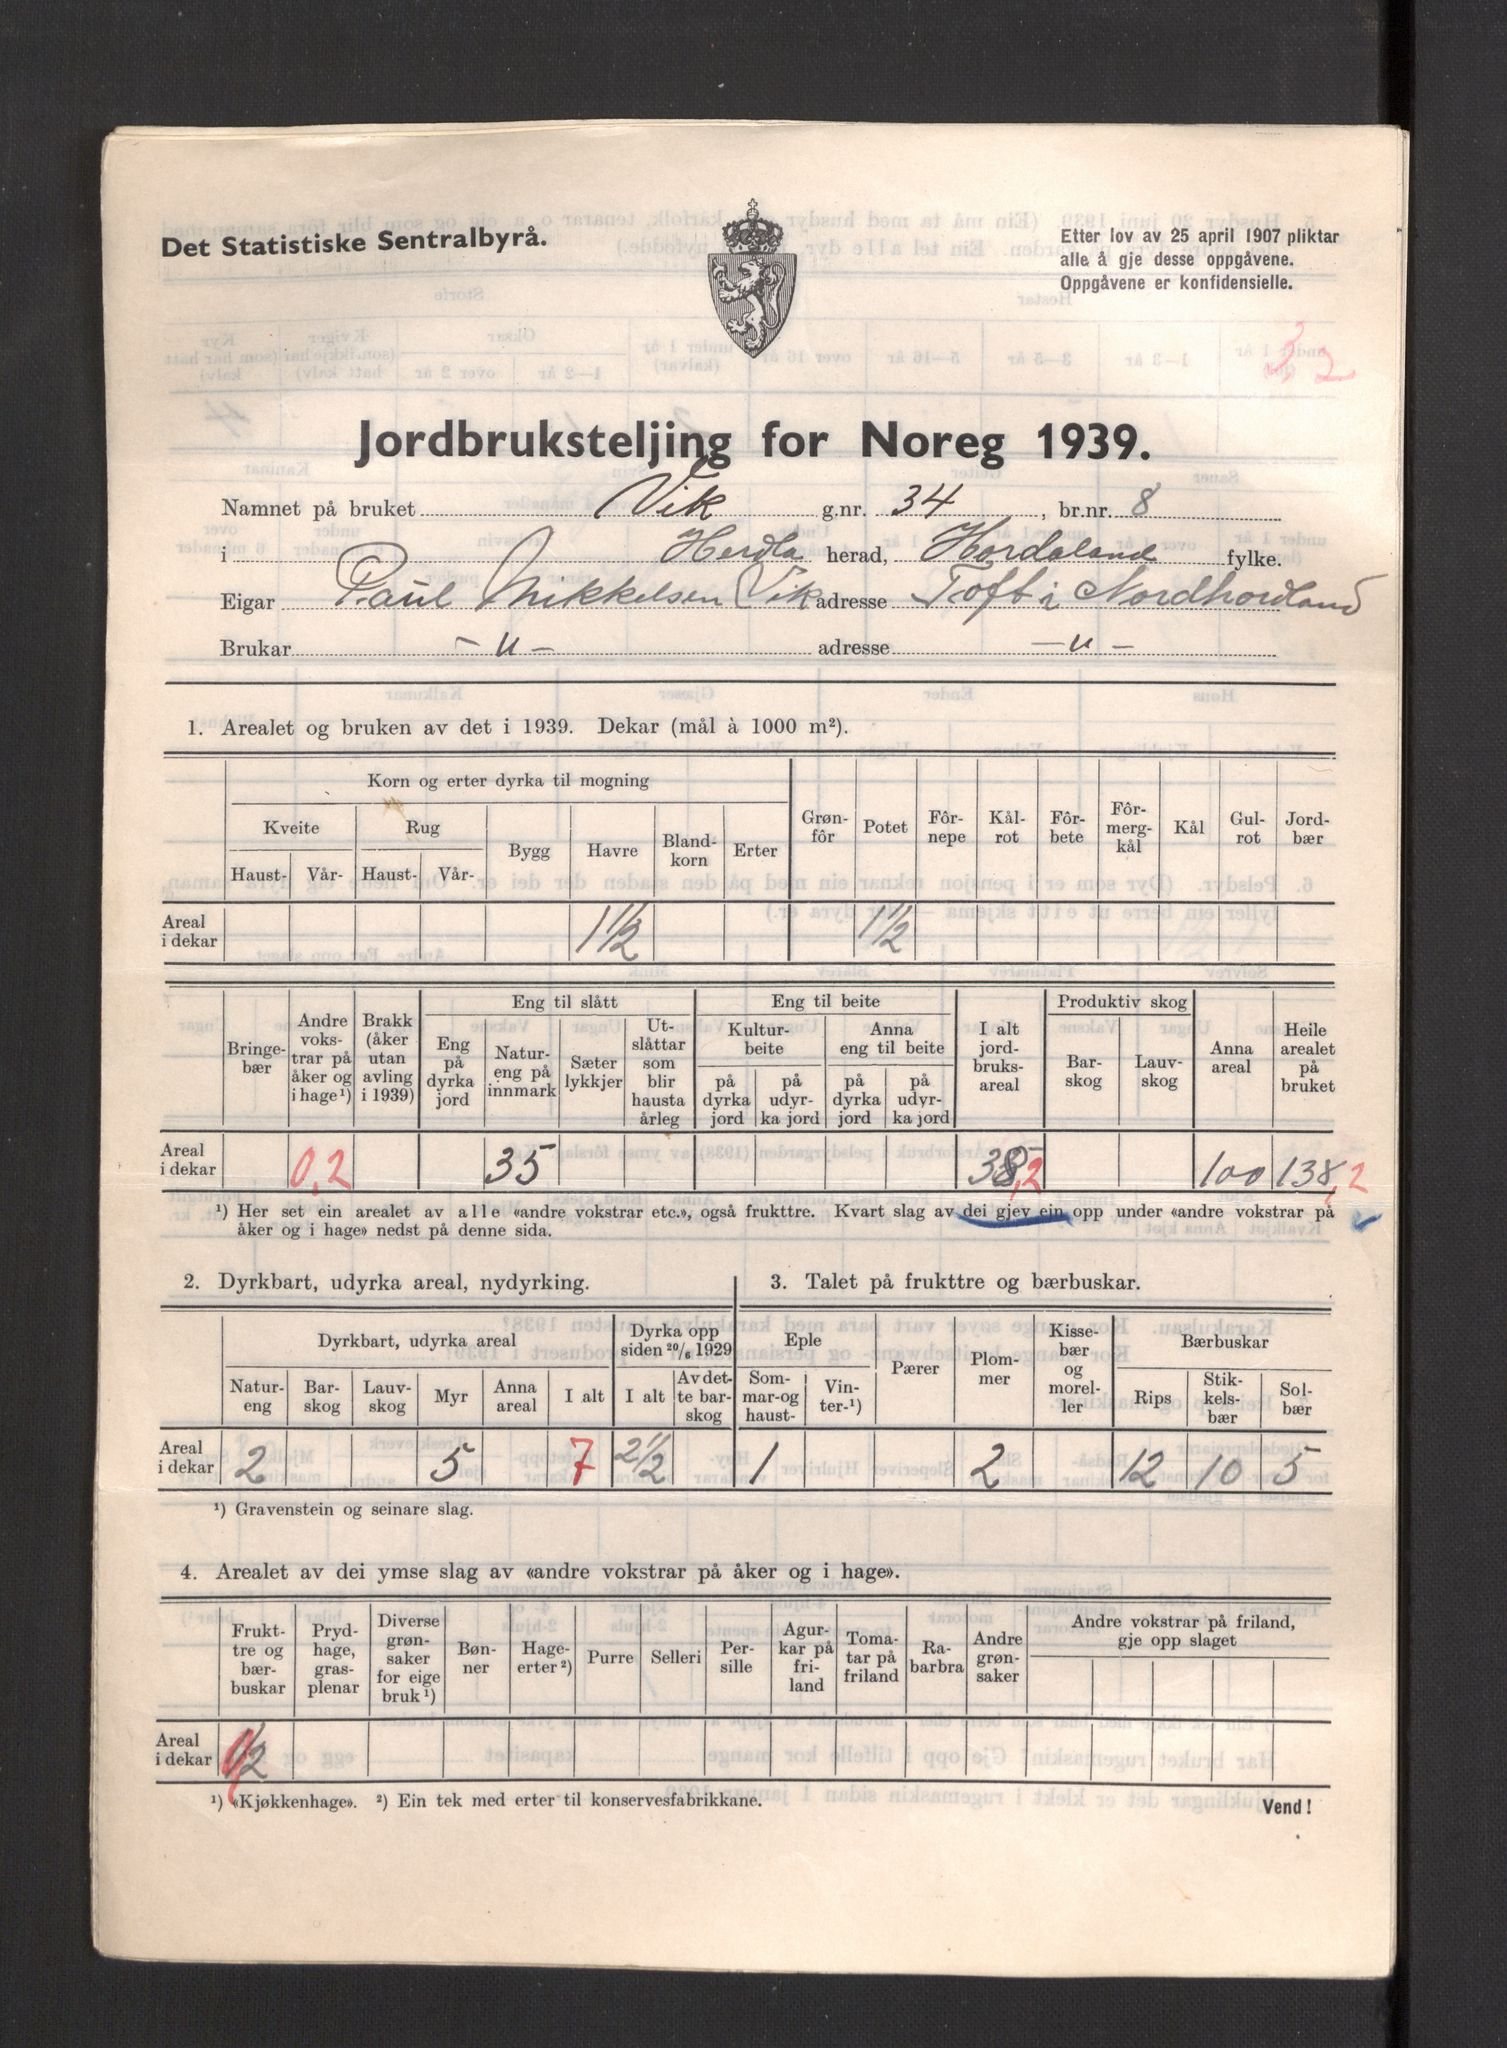 Det Statistiske Sentralbyrå.
Etter lov av 25 april 1907 pliktar
alle å gje desse oppgåvene.
Oppgåvene er konfidensielle.
3,2
Jordbruksteljing for Noreg 1939.
Namnet på bruket Vik g.nr. 34, br.nr. 8
i Herdla herad, Hordaland fylke.
Eigar Paul Mikkelsen Vik adresse Toft i Nordhordland
Brukar – " – adresse – " –
1. Arealet og bruken av det i 1939. Dekar (mål à 1000 m²).
Korn og erter dyrka til mogning
Kveite Rug Bygg Havre Bland-korn Erter Grøn-fôr Potet Fôr-nepe Kål-rot Fôr-bete Fôr-mergkål Kål Gul-rot Jord-bær
Haust- Vår- Haust- Vår-
Areal i dekar 1 1/2 1 1/2
Eng til slått Eng til beite Produktiv skog
Bringe-bær Andre vokstrar på åker og i hage¹) Brakk (åker utan avling i 1939) Eng på dyrka jord Natureng på innmark Sæter lykkjer Utslåttar som blir hausta årleg Kulturbeite Anna eng til beite I alt jordbruksareal Barskog Lauvskog Anna areal Heile arealet på bruket
på dyrka jord på udyrka jord på dyrka jord på udyrka jord
Areal i dekar 0,2 35 38,2 100 138,2
¹) Her set ein arealet av alle «andre vokstrar etc.», også frukttre. Kvart slag av dei gjev ein opp under «andre vokstrar på
åker og i hage» nedst på denne sida.
2. Dyrkbart, udyrka areal, nydyrking.
3. Talet på frukttre og bærbuskar.
Dyrkbart, udyrka areal Dyrka opp siden 20/6 1929 Eple Pærer Plommer Kissebær og moreller Bærbuskar
Natureng Barskog Lauvskog Myr Anna areal I alt I alt Av dette barskog Sommar-og haust- Vinter-¹) Rips Stikkelsbær Solbær
Areal i dekar 2 5 7 2 1/2 1 2 12 10 5
¹) Gravenstein og seinare slag.
4. Arealet av dei ymse slag av «andre vokstrar på åker og i hage».
Frukttre og bærbuskar Prydhage, grasplenar Diverse grønsaker for eige bruk¹) Bønner Hageerter²) Purre Selleri Persille Agurkar på friland Tomatar på friland Rabarbra Andre grønsaker Andre vokstrar på friland, gje opp slaget
Areal i dekar 1/2
¹) «Kjøkkenhage». ²) Ein tek med erter til konservesfabrikkane.
Vend!